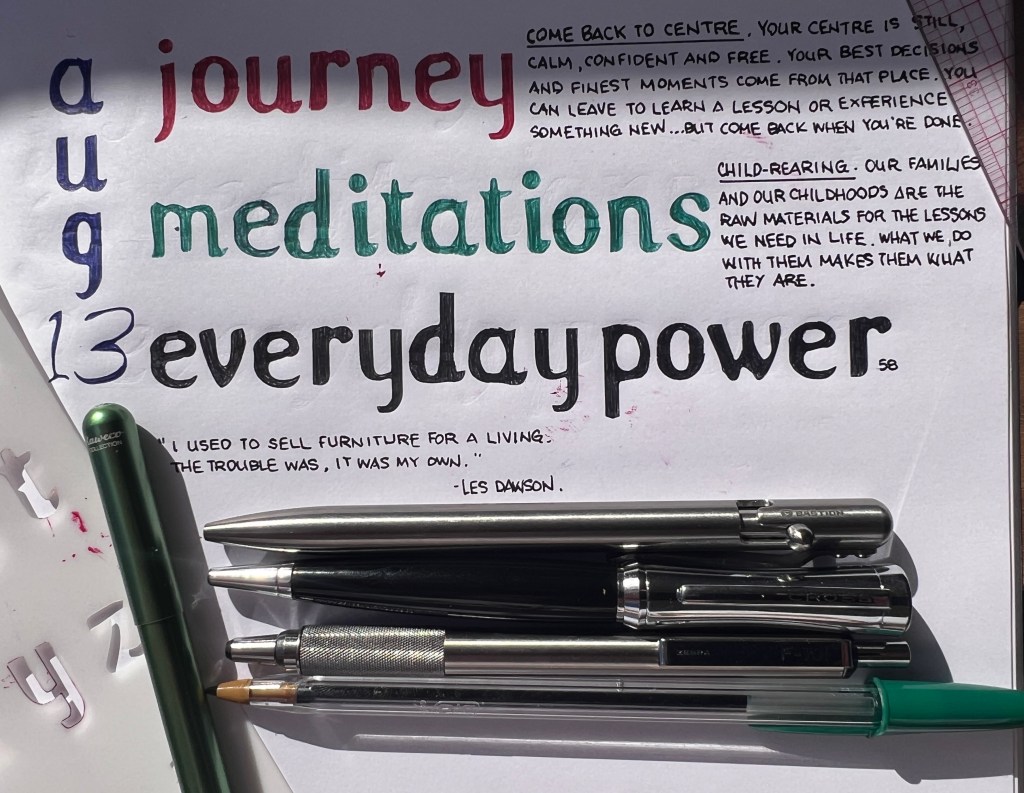 aug 13
journey
COME BACK TO CENTRE. YOUR CENTRE IS STILL,
CALM, CONFIDENT AND FREE. YOUR BEST DECISIONS
AND FINEST MOMENTS COME FROM THAT PLACE. YOU
CAN LEAVE TO LEARN A LESSON OR EXPERIENCE
SOMETHING NEW...BUT COME BACK WHEN YOU'RE DONE.
meditations
CHILD-REARING. OUR FAMILIES
AND OUR CHILDHOODS ARE THE
RAW MATERIALS FOR THE LESSONS
WE NEED IN LIFE. WHAT WE DO
WITH THEM MAKES THEM WHAT
THEY ARE.
everyday power 58
"I USED TO SELL FURNITURE FOR A LIVING.
THE TROUBLE WAS, IT WAS MY OWN."
-LES DAWSON.
kaweco
COLLECTION
BASTION
CROSS
ZEBRA
t
z
y